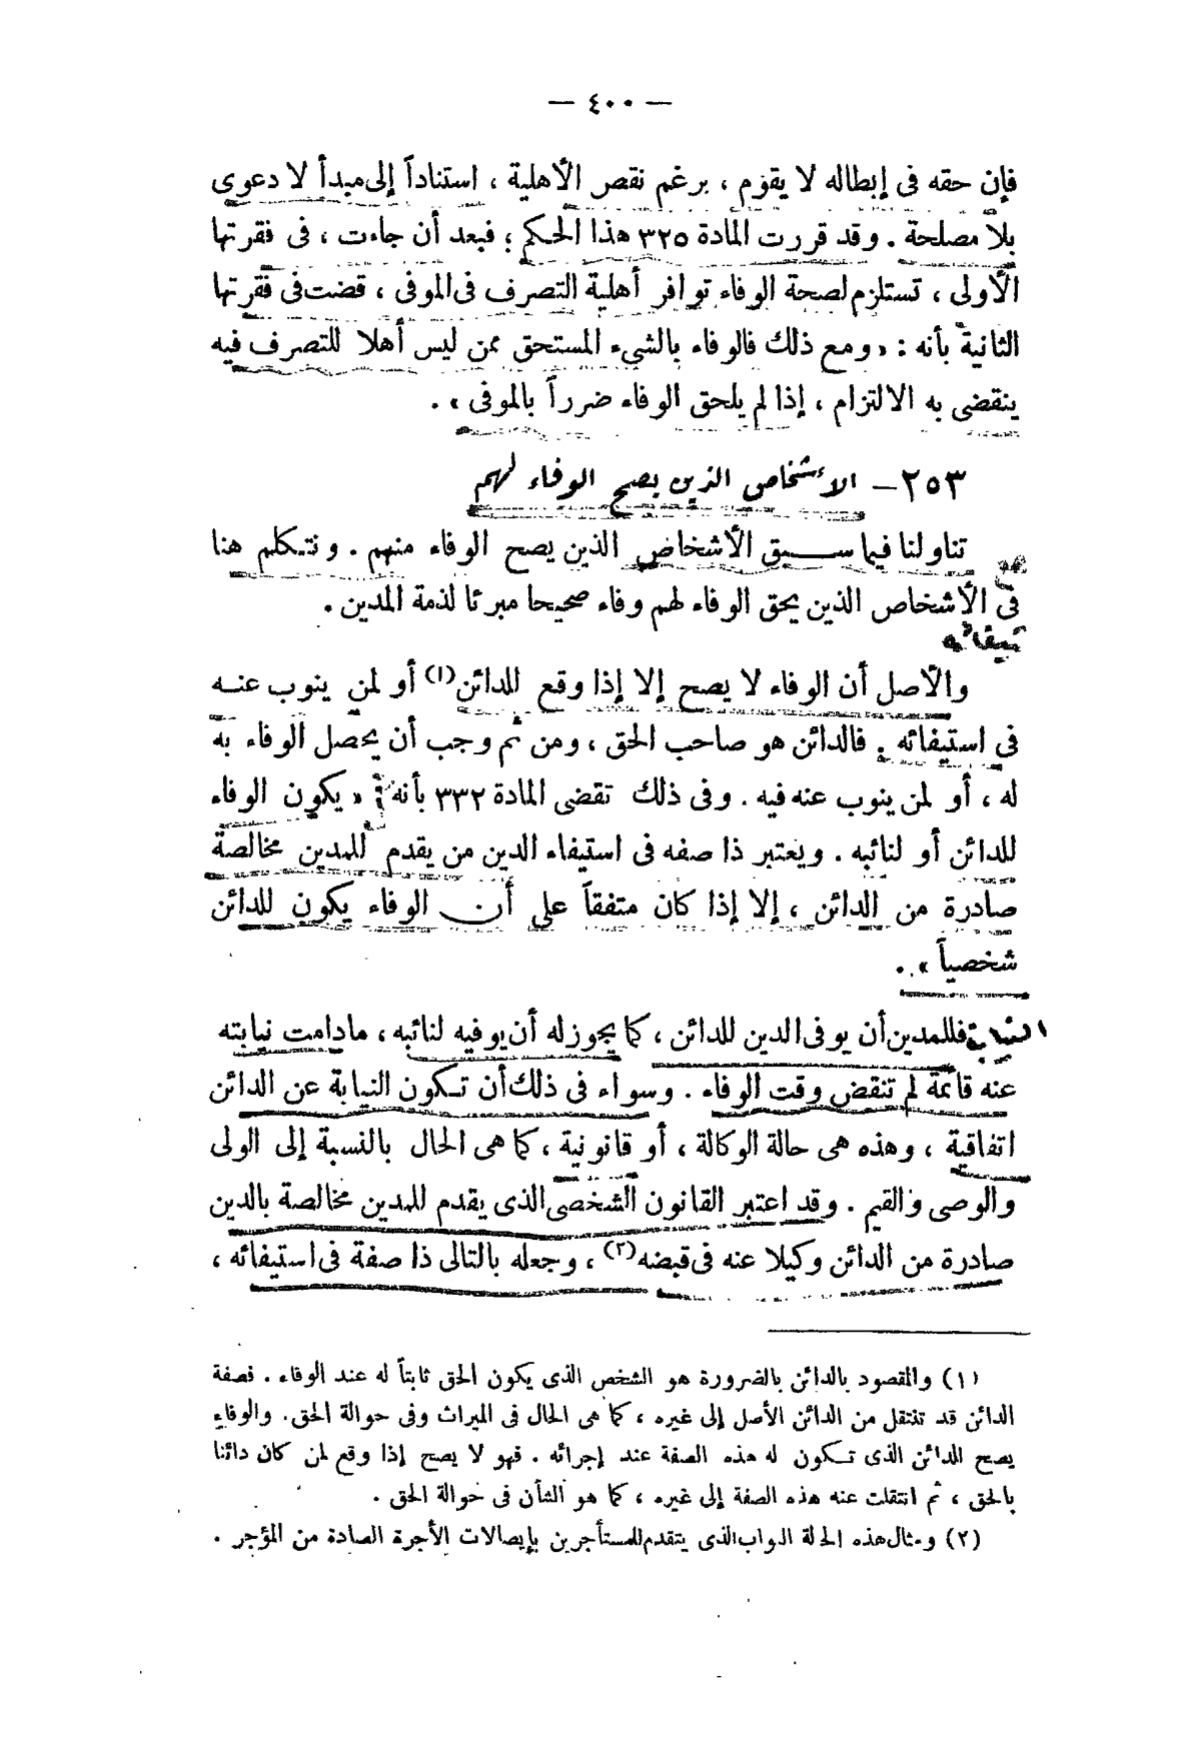 — ٤٠٠ —
فإن حقه فى إبطاله لا يقوم ، برغم نقص الأهلية ، استناداً إلى مبدأ لا دعوى
بلا مصلحة . وقد قررت المادة ٣٢٥ هذا الحكم ؛ فبعد أن جاءت ، فى فقرتها
الأولى ، تستلزم لصحة الوفاء توافر أهلية التصرف فى الموفى ، قضت فى فقرتها
الثانية بأنه : « ومع ذلك فالوفاء بالشىء المستحق ممن ليس أهلا للتصرف فيه
ينقضى به الالتزام ، إذا لم يلحق الوفاء ضرراً بالموفى » .
٢٥٣ — الأشخاص الذين يصح الوفاء لهم
تناولنا فيما سبق الأشخاص الذين يصح الوفاء منهم . ونتكلم هنا
فى الأشخاص الذين يحق الوفاء لهم وفاء صحيحا مبرئا لذمة المدين .
والأصل أن الوفاء لا يصح إلا إذا وقع للدائن(١) أو لمن ينوب عنه
فى استيفائه . فالدائن هو صاحب الحق ، ومن ثم وجب أن يحصل الوفاء به
له ، أو لمن ينوب عنه فيه . وفى ذلك تقضى المادة ٣٣٢ بأنه : « يكون الوفاء
للدائن أو لنائبه . ويعتبر ذا صفه فى استيفاء الدين من يقدم للمدين مخالصة
صادرة من الدائن ، إلا إذا كان متفقاً على أن الوفاء يكون للدائن
شخصياً » .
فللمدين أن يوفى الدين للدائن ، كما يجوز له أن يوفيه لنائبه ، مادامت نيابته
عنه قائمة لم تنقض وقت الوفاء . وسواء فى ذلك أن تكون النيابة عن الدائن
اتفاقية ، وهذه هى حالة الوكالة ، أو قانونية ، كما هى الحال بالنسبة إلى الولى
والوصى والقيم . وقد اعتبر القانون الشخصى الذى يقدم للمدين مخالصة بالدين
صادرة من الدائن وكيلا عنه فى قبضه(٢) ، وجعله بالتالى ذا صفة فى استيفائه ،
(١) والمقصود بالدائن بالضرورة هو الشخص الذى يكون الحق ثابتاً له عند الوفاء . فصفة
الدائن قد تنتقل من الدائن الأصل إلى غيره ، كما هى الحال فى الميراث وفى حوالة الحق . والوفاء
يصح للدائن الذى تكون له هذه الصفة عند إجرائه . فهو لا يصح إذا وقع لمن كان دائنا
بالحق ، ثم انتقلت عنه هذه الصفة إلى غيره ، كما هو الشأن فى حوالة الحق .
(٢) ومثال هذه الحالة البواب الذى يتقدم للمستأجرين بإيصالات الأجرة الصادة من المؤجر .